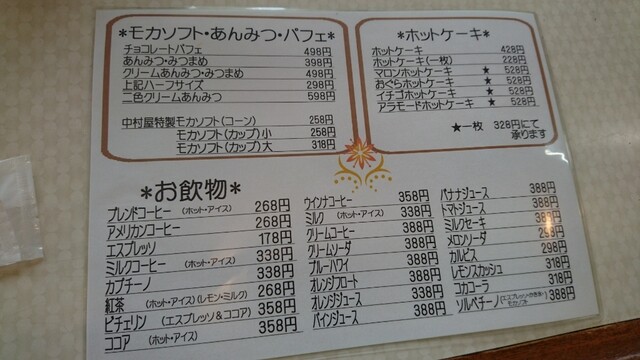 *モカソフト・あんみつ・パフェ*
チョコレートパフェ 498円
あんみつ・みつまめ 398円
クリームあんみつ・みつまめ 498円
上記ハーフサイズ 298円
二色クリームあんみつ 598円
中村屋特製モカソフト(コーン) 258円
モカソフト(カップ)小 258円
モカソフト(カップ)大 318円
*ホットケーキ*
ホットケーキ 428円
ホットケーキ(一枚) 228円
マロンホットケーキ ★ 528円
おぐらホットケーキ ★ 528円
イチゴホットケーキ ★ 528円
アラモードホットケーキ ★ 528円
★一枚 328円にて
承ります
*お飲物*
ブレンドコーヒー (ホット・アイス) 268円
アメリカンコーヒー 268円
エスプレッソ 178円
ミルクコーヒー (ホット・アイス) 338円
カプチーノ 338円
紅茶 (ホット・アイス)(レモン・ミルク) 268円
ビチェリン (エスプレッソ&ココア) 358円
ココア (ホット・アイス) 358円
ウインナコーヒー 358円
ミルク (ホット・アイス) 338円
クリームコーヒー 388円
クリームソーダ 388円
ブルーハワイ 388円
オレンジフロート 388円
オレンジジュース 338円
パインジュース 388円
バナナジュース 388円
トマトジュース 388円
ミルクセーキ 388円
メロンソーダ 298円
カルピス 298円
レモンスカッシュ 318円
コカコーラ 318円
ソルベチーノ 388円